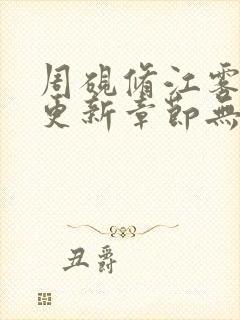 周砚脩江雾
更新章節無
丑爵